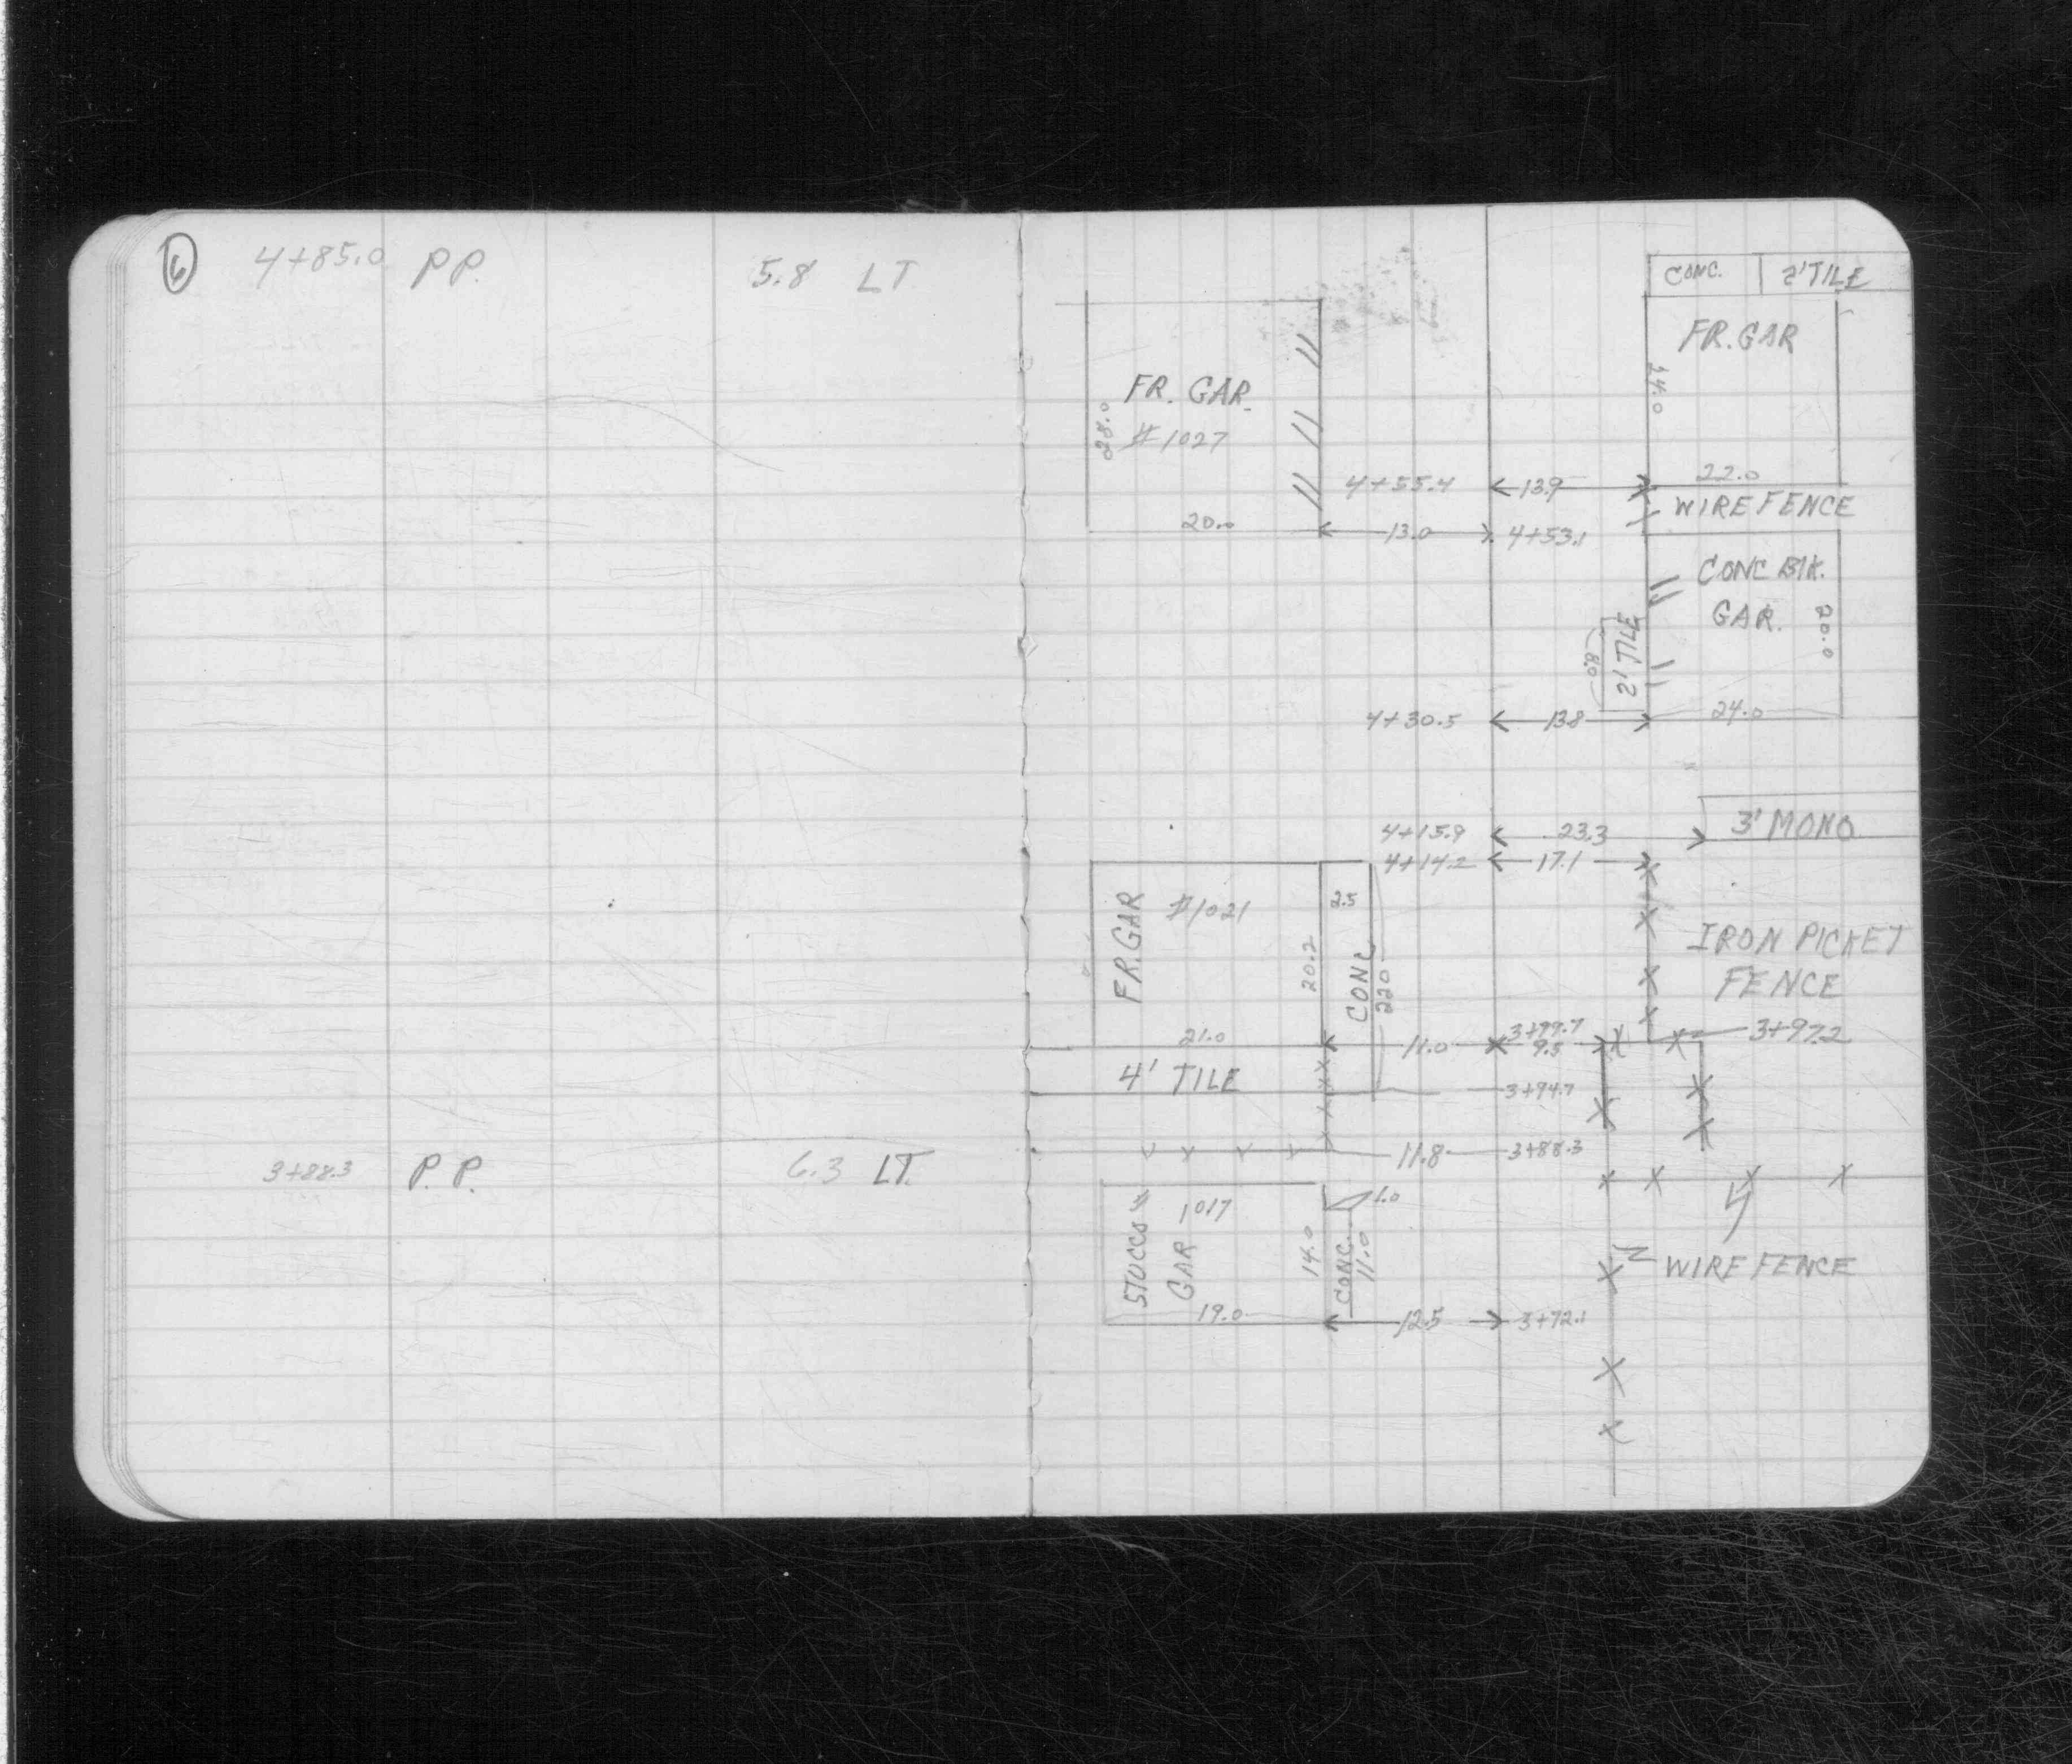 6
4+85.0 P.P. 5.8 LT
3+88.3 P.P. 6.3 LT.
CONC. 2' TILE
FR. GAR
24.0
FR. GAR.
28.0
#1027
4+55.4 13.9 22.0
WIRE FENCE
20.0 13.0 4+53.1
CONC Blk.
GAR. 20.0
2' TILE
8.0
4+30.5 13.8 24.0
4+15.9 23.3 3' MONO
4+14.2 17.1
FR. GAR #1021 2.5
20.2 CONC 22.0
IRON PICKET
FENCE
21.0 11.0 3+99.7
9.5
3+97.2
4' TILE 3+94.7
11.8 3+88.3
STUCCO # 1017 1.0
GAR 14.0 CONC. 11.0
WIRE FENCE
19.0 12.5 3+72.1